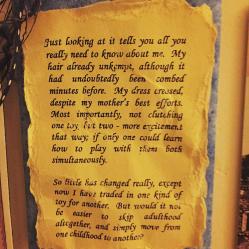 Just looking at it tells you all you
really need to know about me. My
hair already unkempt, although it
had undoubtedly been combed
minutes before. My dress creased,
despite my mother's best efforts.
Most importantly, not clutching
one toy, but two - more excitement
that way; if only one could learn
how to play with them both
simultaneously.
So little has changed really, except
now I have traded in one kind of
toy for another. But would it not
be easier to skip adulthood
altogether, and simply move from
one childhood to another?